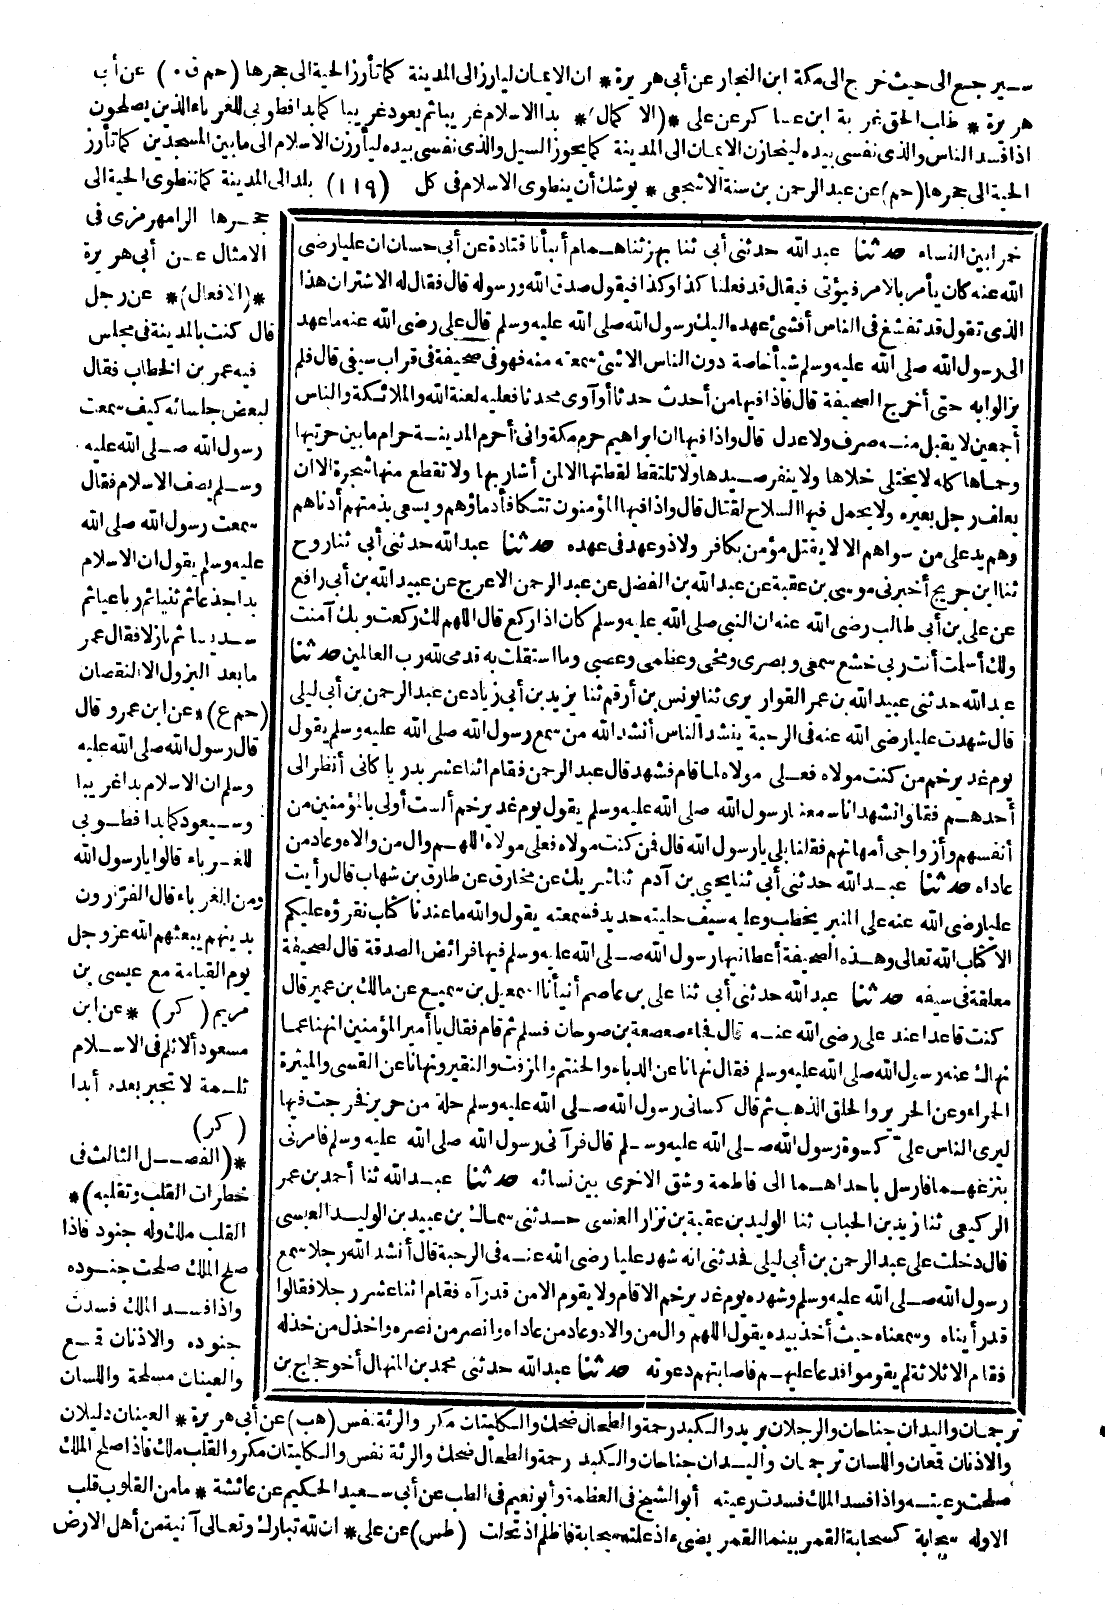 سيرجع الى حيث خرج الى مكة ابن النجار عن أبي هريرة * ان الايمان ليارز الى المدينة كما تأرز الحية الى جحرها (حم ق ٠) عن أبي
هريرة * طاب الحق غربة ابن عساكر عن على * (الاكمال) * بدا الاسلام غريبا ثم يعود غريبا كما بدا فطوبى للغرباء الذين يصلحون
اذا فسد الناس والذى نفسى بيده لينحازن الايمان الى المدينة كما يحوز السيل والذى نفسى بيده ليأرزن الاسلام الى ما بين المسجدين كما تأرز
الحية الى جحرها (حم) عن عبد الرحمن بن سنة الاشجعى * يوشك أن ينطوى الاسلام فى كل (١١٩) بلد الى المدينة كما تنطوى الحية الى
جحرها الرامهرمزى فى
الامثال عن أبي هريرة
* (الافعال) * عن رجل
قال كنت بالمدينة فى مجلس
فيه عمر بن الخطاب فقال
لبعض جلسائه كيف سمعت
رسول الله صلى الله عليه
وسلم يصف الاسلام فقال
سمعت رسول الله صلى الله
عليه وسلم يقول ان الاسلام
بدا جذعا ثم ثنيا ثم رباعيا ثم
سديسا ثم بازلا فقال عمر
ما بعد البزول الا النقصان
(حم ع) * عن ابن عمرو قال
قال رسول الله صلى الله عليه
وسلم ان الاسلام بدا غريبا
وسيعود كما بدا فطوبى
للغرباء قالوا يا رسول الله
ومن الغرباء قال الفرّارون
بدينهم يبعثهم الله عز وجل
يوم القيامة مع عيسى بن
مريم (كر) * عن ابن
مسعود ألا ثلم فى الاسلام
ثلمة لا تجبر بعده أبدا
(كر)
* (الفصل الثالث فى
خطرات القلب وتقلبه) *
القلب ملك وله جنود فاذا
صلح الملك صلحت جنوده
واذا فسد الملك فسدت
جنوده والاذنان قمع
والعينان مسلحة واللسان
خمرا بين النساء حدثنا عبد الله حدثنى أبي ثنا بهز ثنا همام أنبأنا قتادة عن أبى حسان ان عليا رضى
الله عنه كان يأمر بالامر فيؤتى فيقال قد فعلنا كذا وكذا فيقول صدق الله ورسوله قال فقال له الاشتر ان هذا
الذى تقول قد تفشغ فى الناس أفشئ عهده اليك رسول الله صلى الله عليه وسلم قال على رضى الله عنه ما عهد
الى رسول الله صلى الله عليه وسلم شيأ خاصة دون الناس الا شئ سمعته منه فهو فى صحيفة فى قراب سيفى قال فلم
يزالوا به حتى أخرج الصحيفة قال فاذا فيها من أحدث حدثا أو آوى محدثا فعليه لعنة الله والملائكة والناس
أجمعين لا يقبل منه صرف ولا عدل قال واذا فيها ان ابراهيم حرم مكة وانى أحرم المدينة حرام ما بين حرتيها
وحماها كله لا يختلى خلاها ولا ينفر صيدها ولا تلتقط لقطتها الا لمن أشار بها ولا تقطع منها شجرة الا ان
يعلف رجل بعيره ولا يحمل فيها السلاح لقتال قال واذا فيها المؤمنون تتكافأ دماؤهم ويسعى بذمتهم أدناهم
وهم يد على من سواهم الا لا يقتل مؤمن بكافر ولا ذو عهد فى عهده حدثنا عبد الله حدثنى أبي ثنا روح
ثنا ابن جريج أخبرنى موسى بن عقبة عن عبد الله بن الفضل عن عبد الرحمن الاعرج عن عبيد الله بن أبى رافع
عن على بن أبى طالب رضى الله عنه ان النبى صلى الله عليه وسلم كان اذا ركع قال اللهم لك ركعت وبك آمنت
ولك أسلمت أنت ربى خشع سمعى وبصرى ومخى وعظمى وعصبى وما استقلت به قدمى لله رب العالمين حدثنا
عبد الله حدثنى عبيد الله بن عمر القواريرى ثنا يونس بن أرقم ثنا يزيد بن أبى زياد عن عبد الرحمن بن أبى ليلى
قال شهدت عليا رضى الله عنه فى الرحبة ينشد الناس أنشد الله من سمع رسول الله صلى الله عليه وسلم يقول
يوم غدير خم من كنت مولاه فعلى مولاه لما قام فشهد قال عبد الرحمن فقام اثنا عشر بدريا كأنى أنظر الى
أحدهم فقالوا نشهد انا سمعنا رسول الله صلى الله عليه وسلم يقول يوم غدير خم ألست أولى بالمؤمنين من
أنفسهم وأزواجى أمهاتهم فقلنا بلى يا رسول الله قال فمن كنت مولاه فعلى مولاه اللهم وال من والاه وعاد من
عاداه حدثنا عبد الله حدثنى أبي ثنا يحيى بن آدم ثنا شريك عن مخارق عن طارق بن شهاب قال رأيت
عليا رضى الله عنه على المنبر يخطب وعليه سيف حليته حديد فسمعته يقول والله ما عندنا كتاب نقرؤه عليكم
الا كتاب الله تعالى وهذه الصحيفة أعطانيها رسول الله صلى الله عليه وسلم فيها فرائض الصدقة قال لصحيفة
معلقة فى سيفه حدثنا عبد الله حدثنى أبى ثنا على بن عاصم أنبأنا اسمعيل بن سميع عن مالك بن عمير قال
كنت قاعدا عند على رضى الله عنه قال فجاء صعصعة بن صوحان فسلم ثم قام فقال يا أمير المؤمنين انهنا عما
نهاك عنه رسول الله صلى الله عليه وسلم فقال نهانا عن الدباء والحنتم والمزفت والنقير ونهانا عن القسى والميثرة
الحمراء وعن الحرير والحلق الذهب ثم قال كسانى رسول الله صلى الله عليه وسلم حلة من حرير فخرجت فيها
ليرى الناس علىّ كسوة رسول الله صلى الله عليه وسلم قال فرآنى رسول الله صلى الله عليه وسلم فامرنى
بنزعهما فارسل باحداهما الى فاطمة وشق الاخرى بين نسائه حدثنا عبد الله ثنا أحمد بن عمر
الركيعى ثنا زيد بن الحباب ثنا الوليد بن عقبة بن نزار العنسى حدثنى سماك بن عبيد بن الوليد العبسى
قال دخلت على عبد الرحمن بن أبى ليلى فحدثنى انه شهد عليا رضى الله عنه فى الرحبة قال أنشد الله رجلا سمع
رسول الله صلى الله عليه وسلم وشهده يوم غدير خم الا قام ولا يقوم الا من قد رآه فقام اثنا عشر رجلا فقالوا
قد رأيناه وسمعناه حيث أخذ بيده يقول اللهم وال من والاه وعاد من عاداه وانصر من نصره واخذل من خذله
فقام الا ثلاثة لم يقوموا فدعا عليهم فاصابتهم دعوته حدثنا عبد الله حدثنى محمد بن المنهال أخو حجاج بن
ترجمان واليدان جناحان والرجلان بريد والكبد رحمة والطحال ضحك والكليتان مكر والرئة نفس (هب) عن أبى هريرة * العينان دليلان
والاذنان قمعان واللسان ترجمان واليدان جناحان والكبد رحمة والطحال ضحك والرئة نفس والكليتان مكر والقلب ملك فاذا صلح الملك
صلحت رعيته واذا فسد الملك فسدت رعيته أبو الشيخ فى العظمة وأبو نعيم فى الطب عن أبى سعيد الحكيم عن عائشة * ما من القلوب قلب
الا وله سحابة كسحابة القمر بينما القمر يضىء اذ علته سحابة فاظلم اذ تجلت (طس) عن على * ان لله تبارك وتعالى آنية من أهل الارض